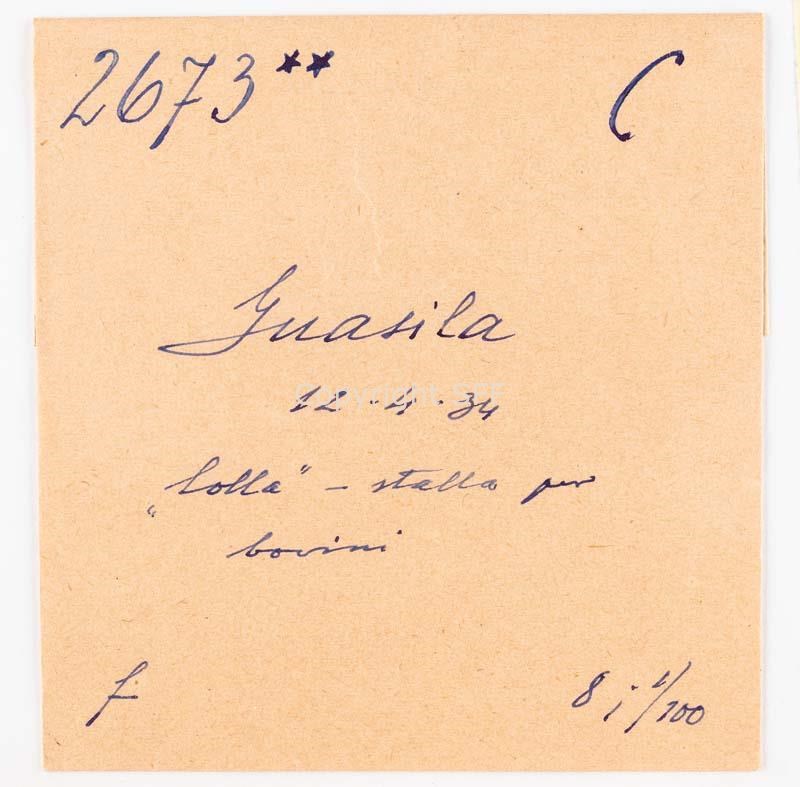 2673** C
Guasila
12-4-34
„lolla" - stalla per
bovini
f. 8 ; 1/100